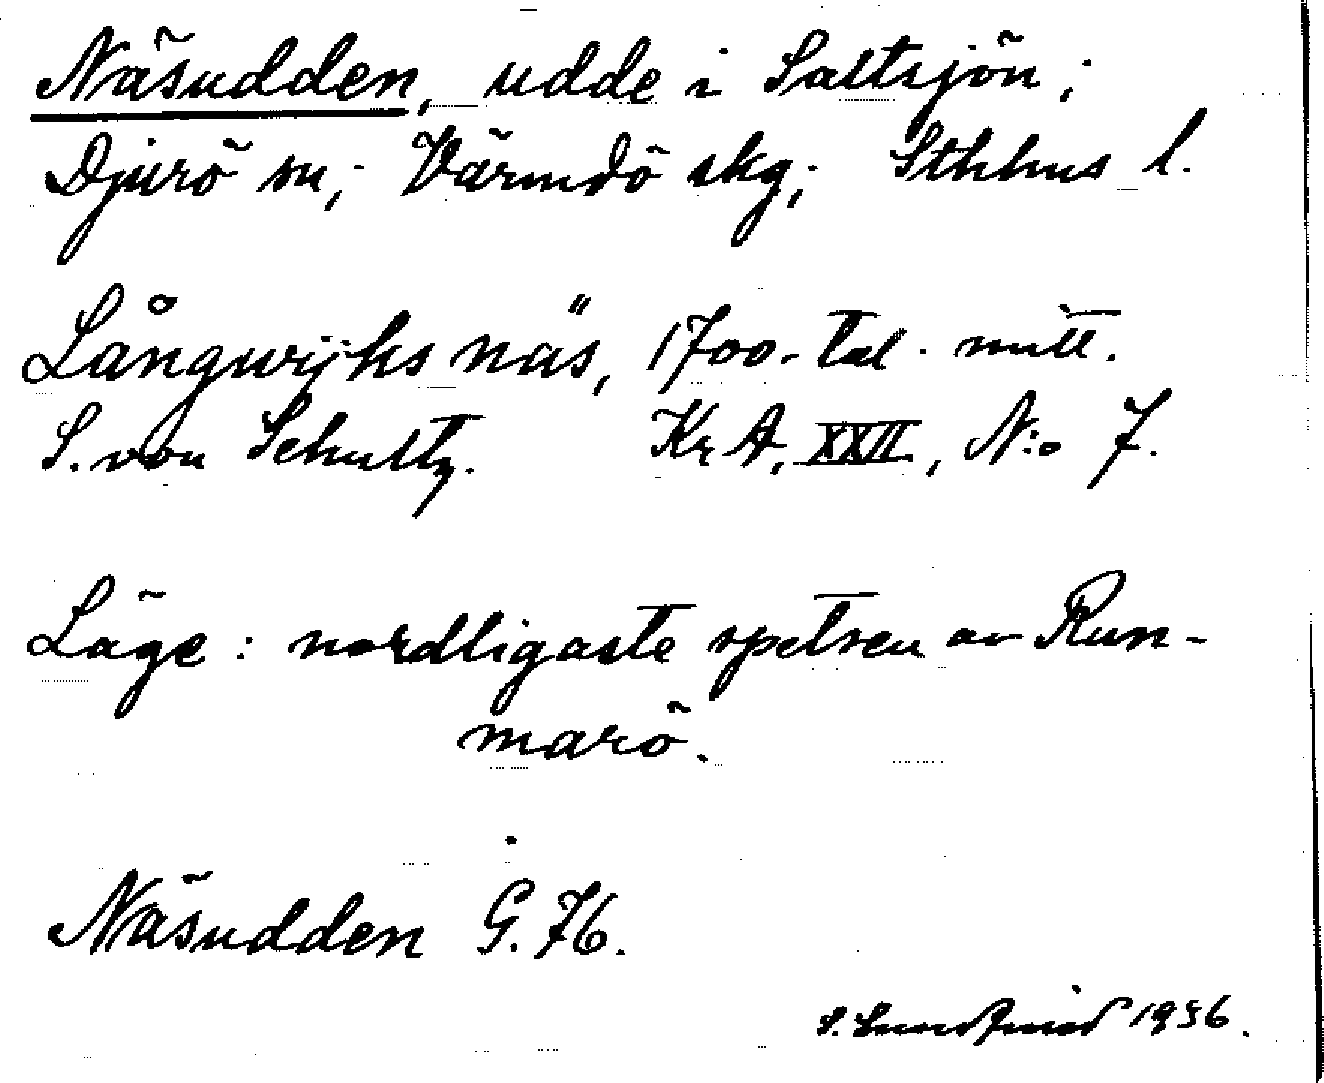 Näsudden, udde i Saltsjön;
Djurö sn; Värmdö skg; Sthlms l.
Långwijks näs, 1700-tal. mitt.
S. von Schultz. KrA, XXII, N:o 7.
Läge: nordligaste spetsen av Run-
marö.
Näsudden G. 76.
S. 1936.